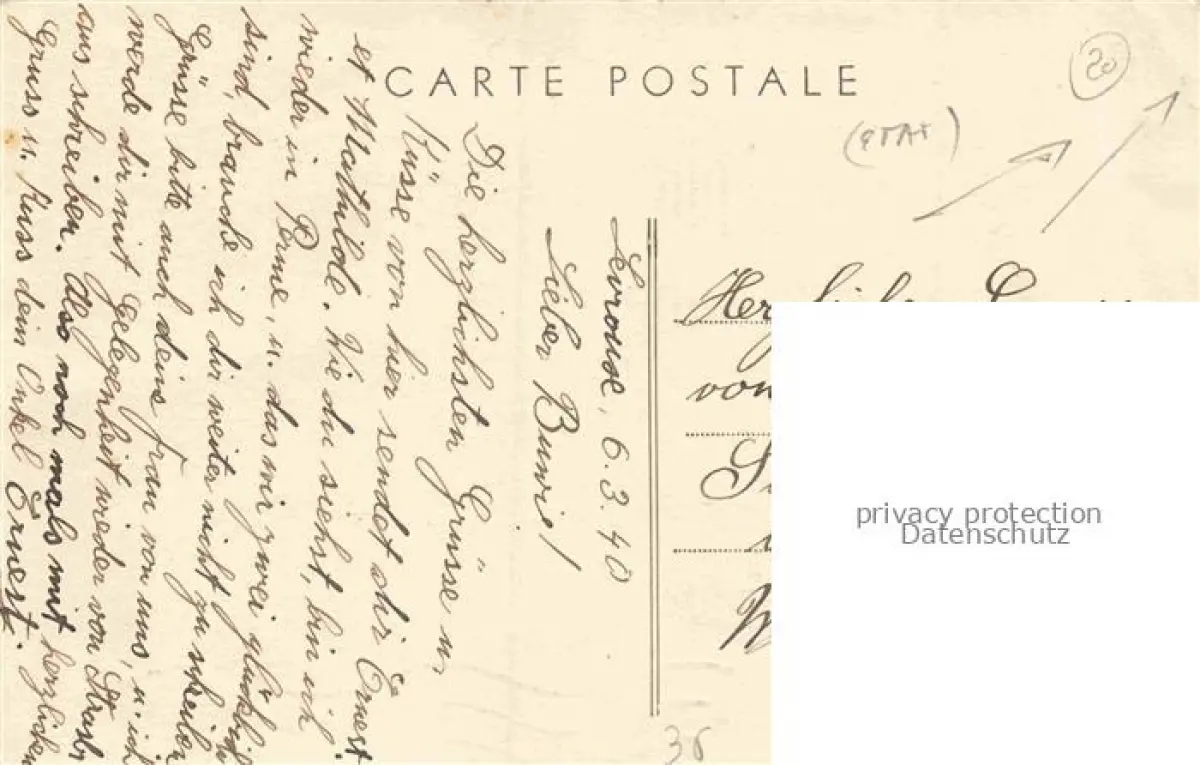 CARTE POSTALE
20
(ETAT)
Levroux, 6.3.40
Lieber
Die herzlichsten Grüsse u.
Küsse von hier sendet dir Ernest
et Mathilde. Wie du siehst, bin ich
wieder in Perme, u. das wir zwei glücklich
sind, brauche ich dir weiter nicht zu schreiben
Grüsse bitte auch deine frau von uns, u. ich
werde dir mit Gelegenheit wieder von Strasb
aus schreiben. Also noch mals mit herzlichen
Gruss u. Kuss dein Onkel Ernest.
von
36
privacy protection
Datenschutz